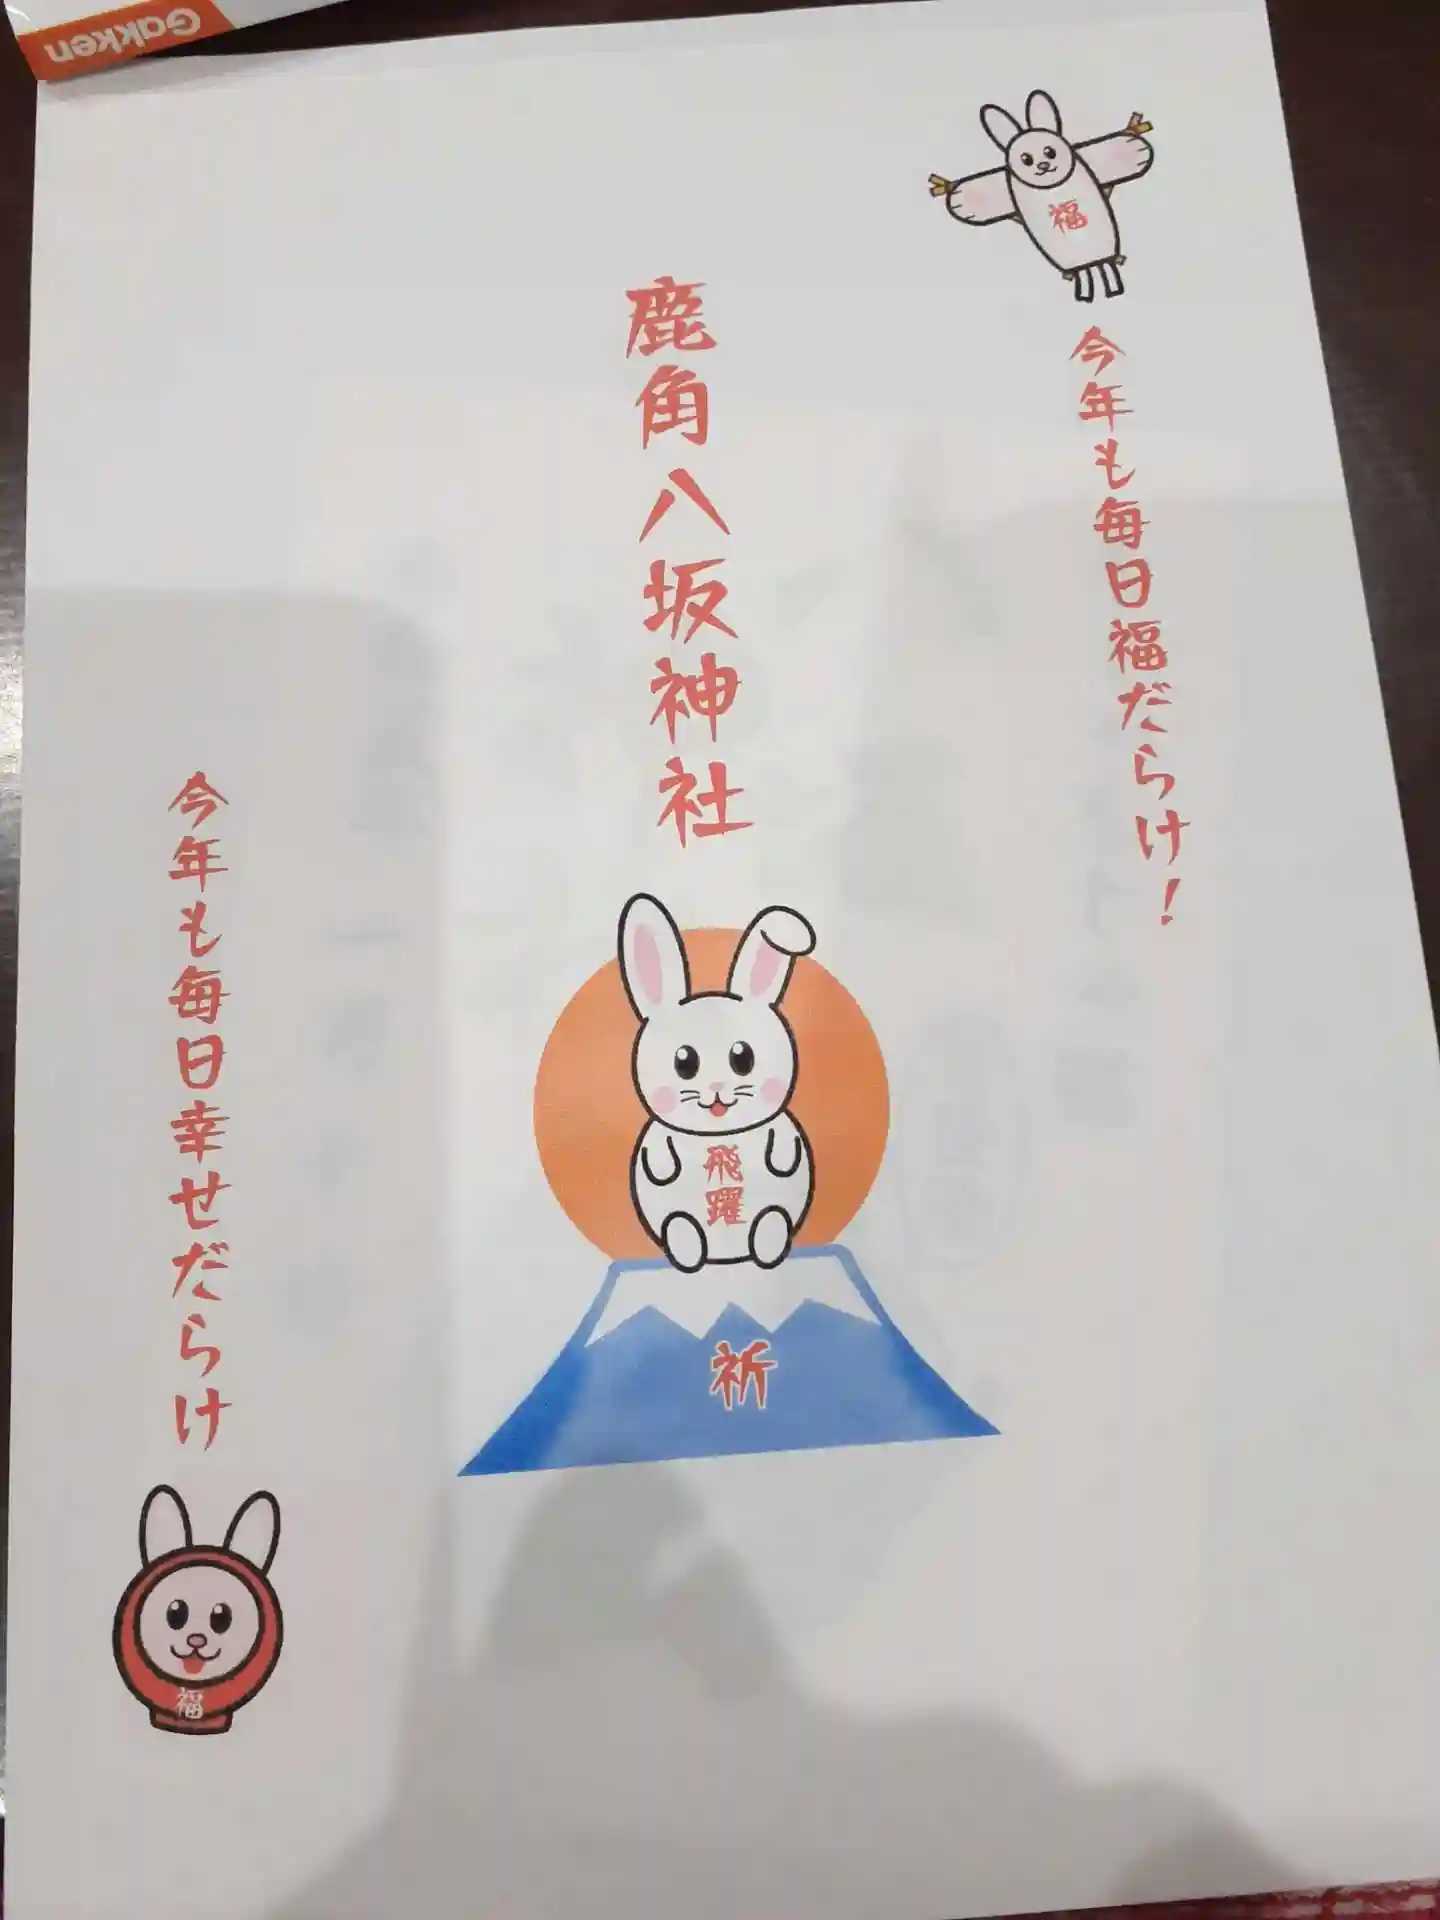 Gakken
福
今年も毎日福だらけ！
鹿角八坂神社
飛躍
祈
今年も毎日幸せだらけ
福